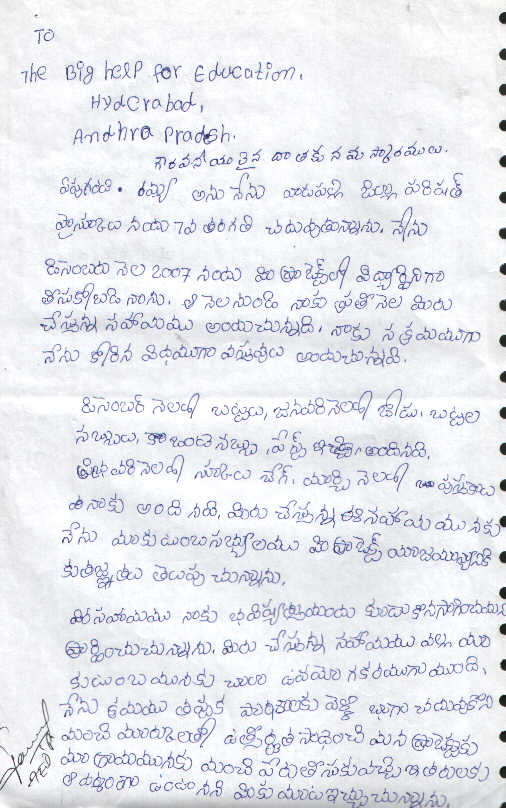 TO
The Big help for Education.
Hyderabad,
Andhra Pradesh.
గౌరవనీయులైన దాతకు నమస్కారములు.
రమ్య అను నేను జిల్లా పరిషత్
7వ తరగతి చదువుతున్నాను. నేను
డిసెంబరు నెల 2007 నందు మీ ప్రాజెక్ట్‌లో విద్యార్థినిగా
తీసుకోబడినాను. ఆ నెలనుండి నాకు ప్రతి నెల మీరు
చేస్తున్న సహాయము అందుచున్నది. నాకు సక్రమముగా
నేను కోరిన విధముగా వస్తువులు అందుచున్నది.
డిసెంబర్ నెలలో బట్టలు, జనవరి నెలలో బట్టల
సబ్బులు, ఒంటి సబ్బు, పేస్ట్ అందినది.
ఫిబ్రవరి నెలలో స్కూలు బేగ్, మార్చి నెలలో పుస్తకాలు
నాకు అందినది. మీరు చేస్తున్న ఈ సహాయమునకు
నేను మా కుటుంబ సభ్యులము మీ ప్రాజెక్ట్
కృతజ్ఞతలు తెలుపుచున్నాను.
ఈ సహాయము నాకు భవిష్యత్తుయందు కూడు కొనసాగించమని
ప్రార్థించుచున్నాను. మీరు చేస్తున్న సహాయము వల్ల మా
కుటుంబమునకు చాలా ఉపయోగకరముగా ఉంది.
నేను పాఠశాలకు వెళ్లి బాగా చదువుకొని
మంచి మార్కులతో ఉత్తీర్ణత సాధించి మన ప్రాజెక్టుకు
మా గ్రామమునకు మంచి పేరు తీసుకువచ్చి ఇతరులకు
ఆదర్శంగా ఉంటానని మీకు మాట ఇచ్చుచున్నాను.